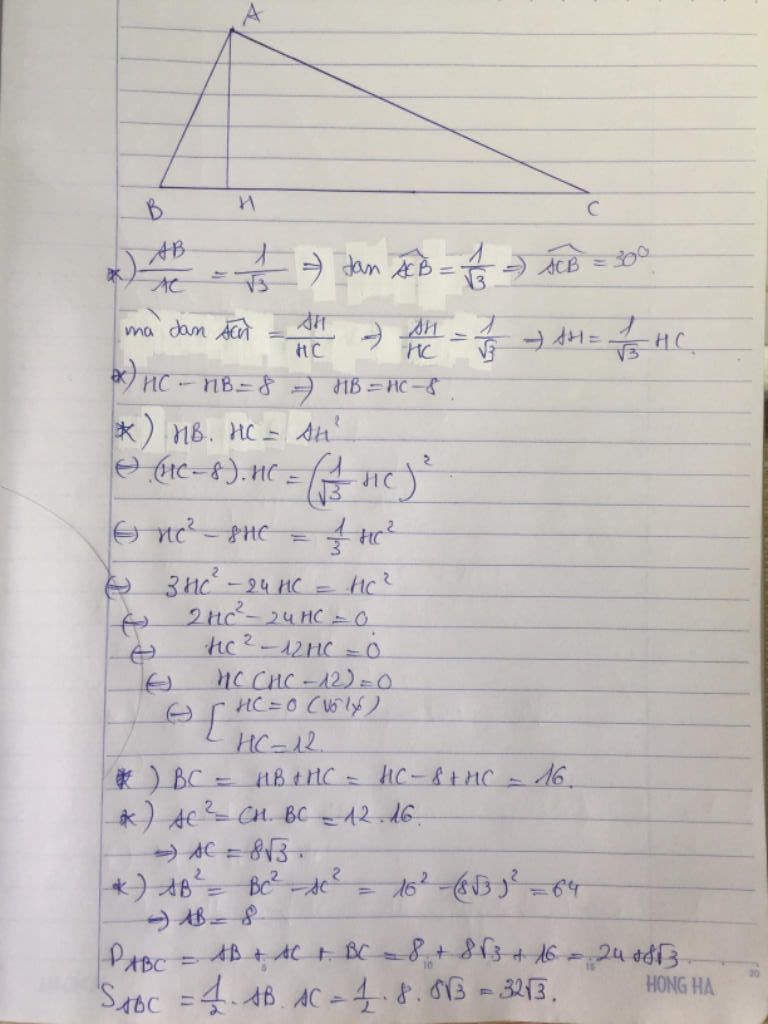 A
B H C
*) AB/AC = 1/√3 ⇒ tan ACB = 1/√3 ⇒ ACB = 30°
mà tan ACH = AH/HC ⇒ AH/HC = 1/√3 ⇒ AH = 1/√3 HC.
*) HC - HB = 8 ⇒ HB = HC - 8.
*) HB. HC = AH²
⇔ (HC - 8). HC = (1/√3 HC)²
⇔ HC² - 8HC = 1/3 HC²
⇔ 3HC² - 24HC = HC²
⇔ 2HC² - 24HC = 0
⇔ HC² - 12HC = 0
⇔ HC (HC - 12) = 0
⇔ [ HC = 0 (vô lý)
HC = 12.
*) BC = HB + HC = HC - 8 + HC = 16.
*) AC² = CH. BC = 12.16.
⇒ AC = 8√3.
*) AB² = BC² - AC² = 16² - (8√3)² = 64
⇒ AB = 8
P_ABC = AB + AC + BC = 8 + 8√3 + 16 = 24 + 8√3.
5 10 15 20
S_ABC = 1/2 . AB. AC = 1/2 . 8. 8√3 = 32√3.
HONG HA